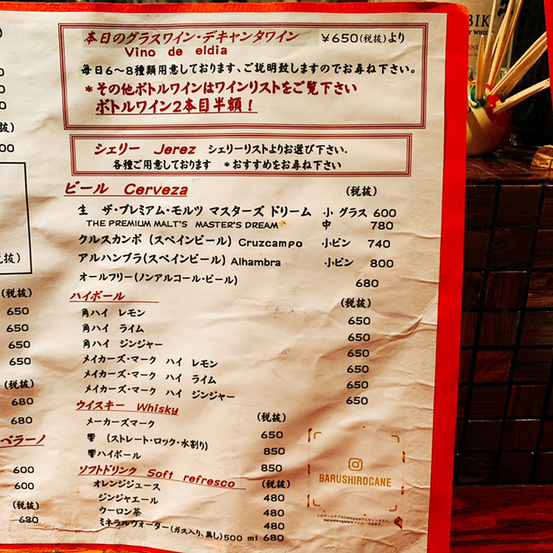 本日のグラスワイン・デキャンタワイン ¥650(税抜)より
Vino de eldia
毎日6〜8種類用意しております、ご説明致しますのでお尋ね下さい。
*その他ボトルワインはワインリストをご覧下さい
ボトルワイン2本目半額!
シェリー Jerez シェリーリストよりお選び下さい.
各種ご用意しております *おすすめをお尋ね下さい
ビール Cerveza (税抜)
生 ザ・プレミアム・モルツ マスターズ ドリーム 小 グラス 600
THE PREMIUM MALT'S MASTER'S DREAM 中 780
クルスカンポ (スペインビール) Cruzcampo 小ビン 740
アルハンブラ(スペインビール) Alhambra 小ビン 800
オールフリー(ノンアルコール・ビール) 680
ハイボール (税抜)
角ハイ レモン 650
角ハイ ライム 650
角ハイ ジンジャー 650
メイカーズ・マーク ハイ レモン 650
メイカーズ・マーク ハイ ライム 650
メイカーズ・マーク ハイ ジンジャー 650
ウイスキー Whisky (税抜)
メーカーズマーク 650
響 (ストレート・ロック・水割り) 850
響ハイボール 850
ソフトドリンク Soft refresco (税抜)
オレンジジュース 480
ジンジャエール 480
ウーロン茶 480
ミネラルウォーター(ガス入り、無し)500 ml 680
BARUSHIROGANE
(税抜)
650
650
650
650
(税抜)
680
680
ベラーノ
600
600
(税抜)
680